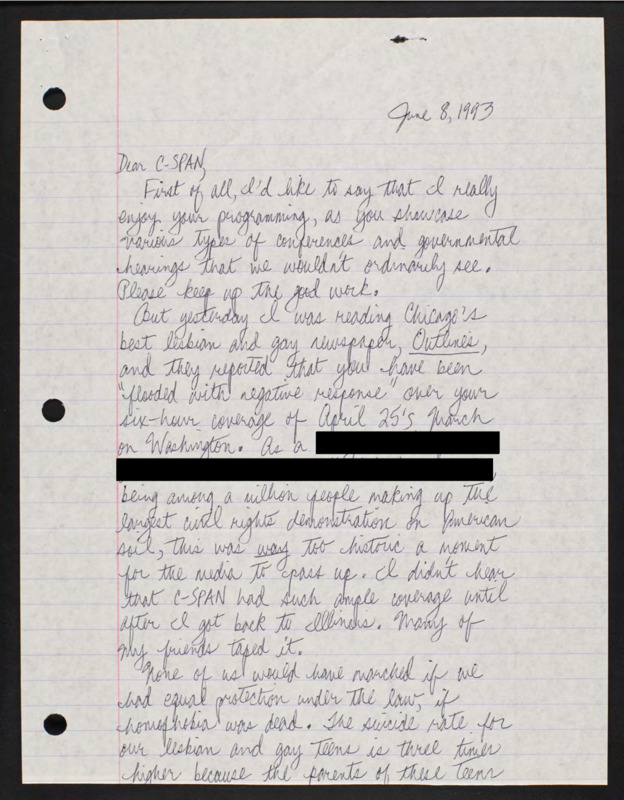 June 8, 1993
Dear C-SPAN,
First of all, I'd like to say that I really
enjoy your programming, as you showcase
various types of conferences and governmental
hearings that we wouldn't ordinarily see.
Please keep up the good work.
But yesterday I was reading Chicago's
best lesbian and gay newspaper, Outlines,
and they reported that you have been
"flooded with negative response" over your
six-hour coverage of April 25's March
on Washington. As a
being among a million people making up the
largest civil rights demonstration on American
soil, this was way too historic a moment
for the media to pass up. I didn't hear
that C-SPAN had such ample coverage until
after I got back to Illinois. Many of
my friends taped it.
None of us would have marched if we
had equal protection under the law, if
homophobia was dead. The suicide rate for
our lesbian and gay teens is three times
higher because the parents of these teens